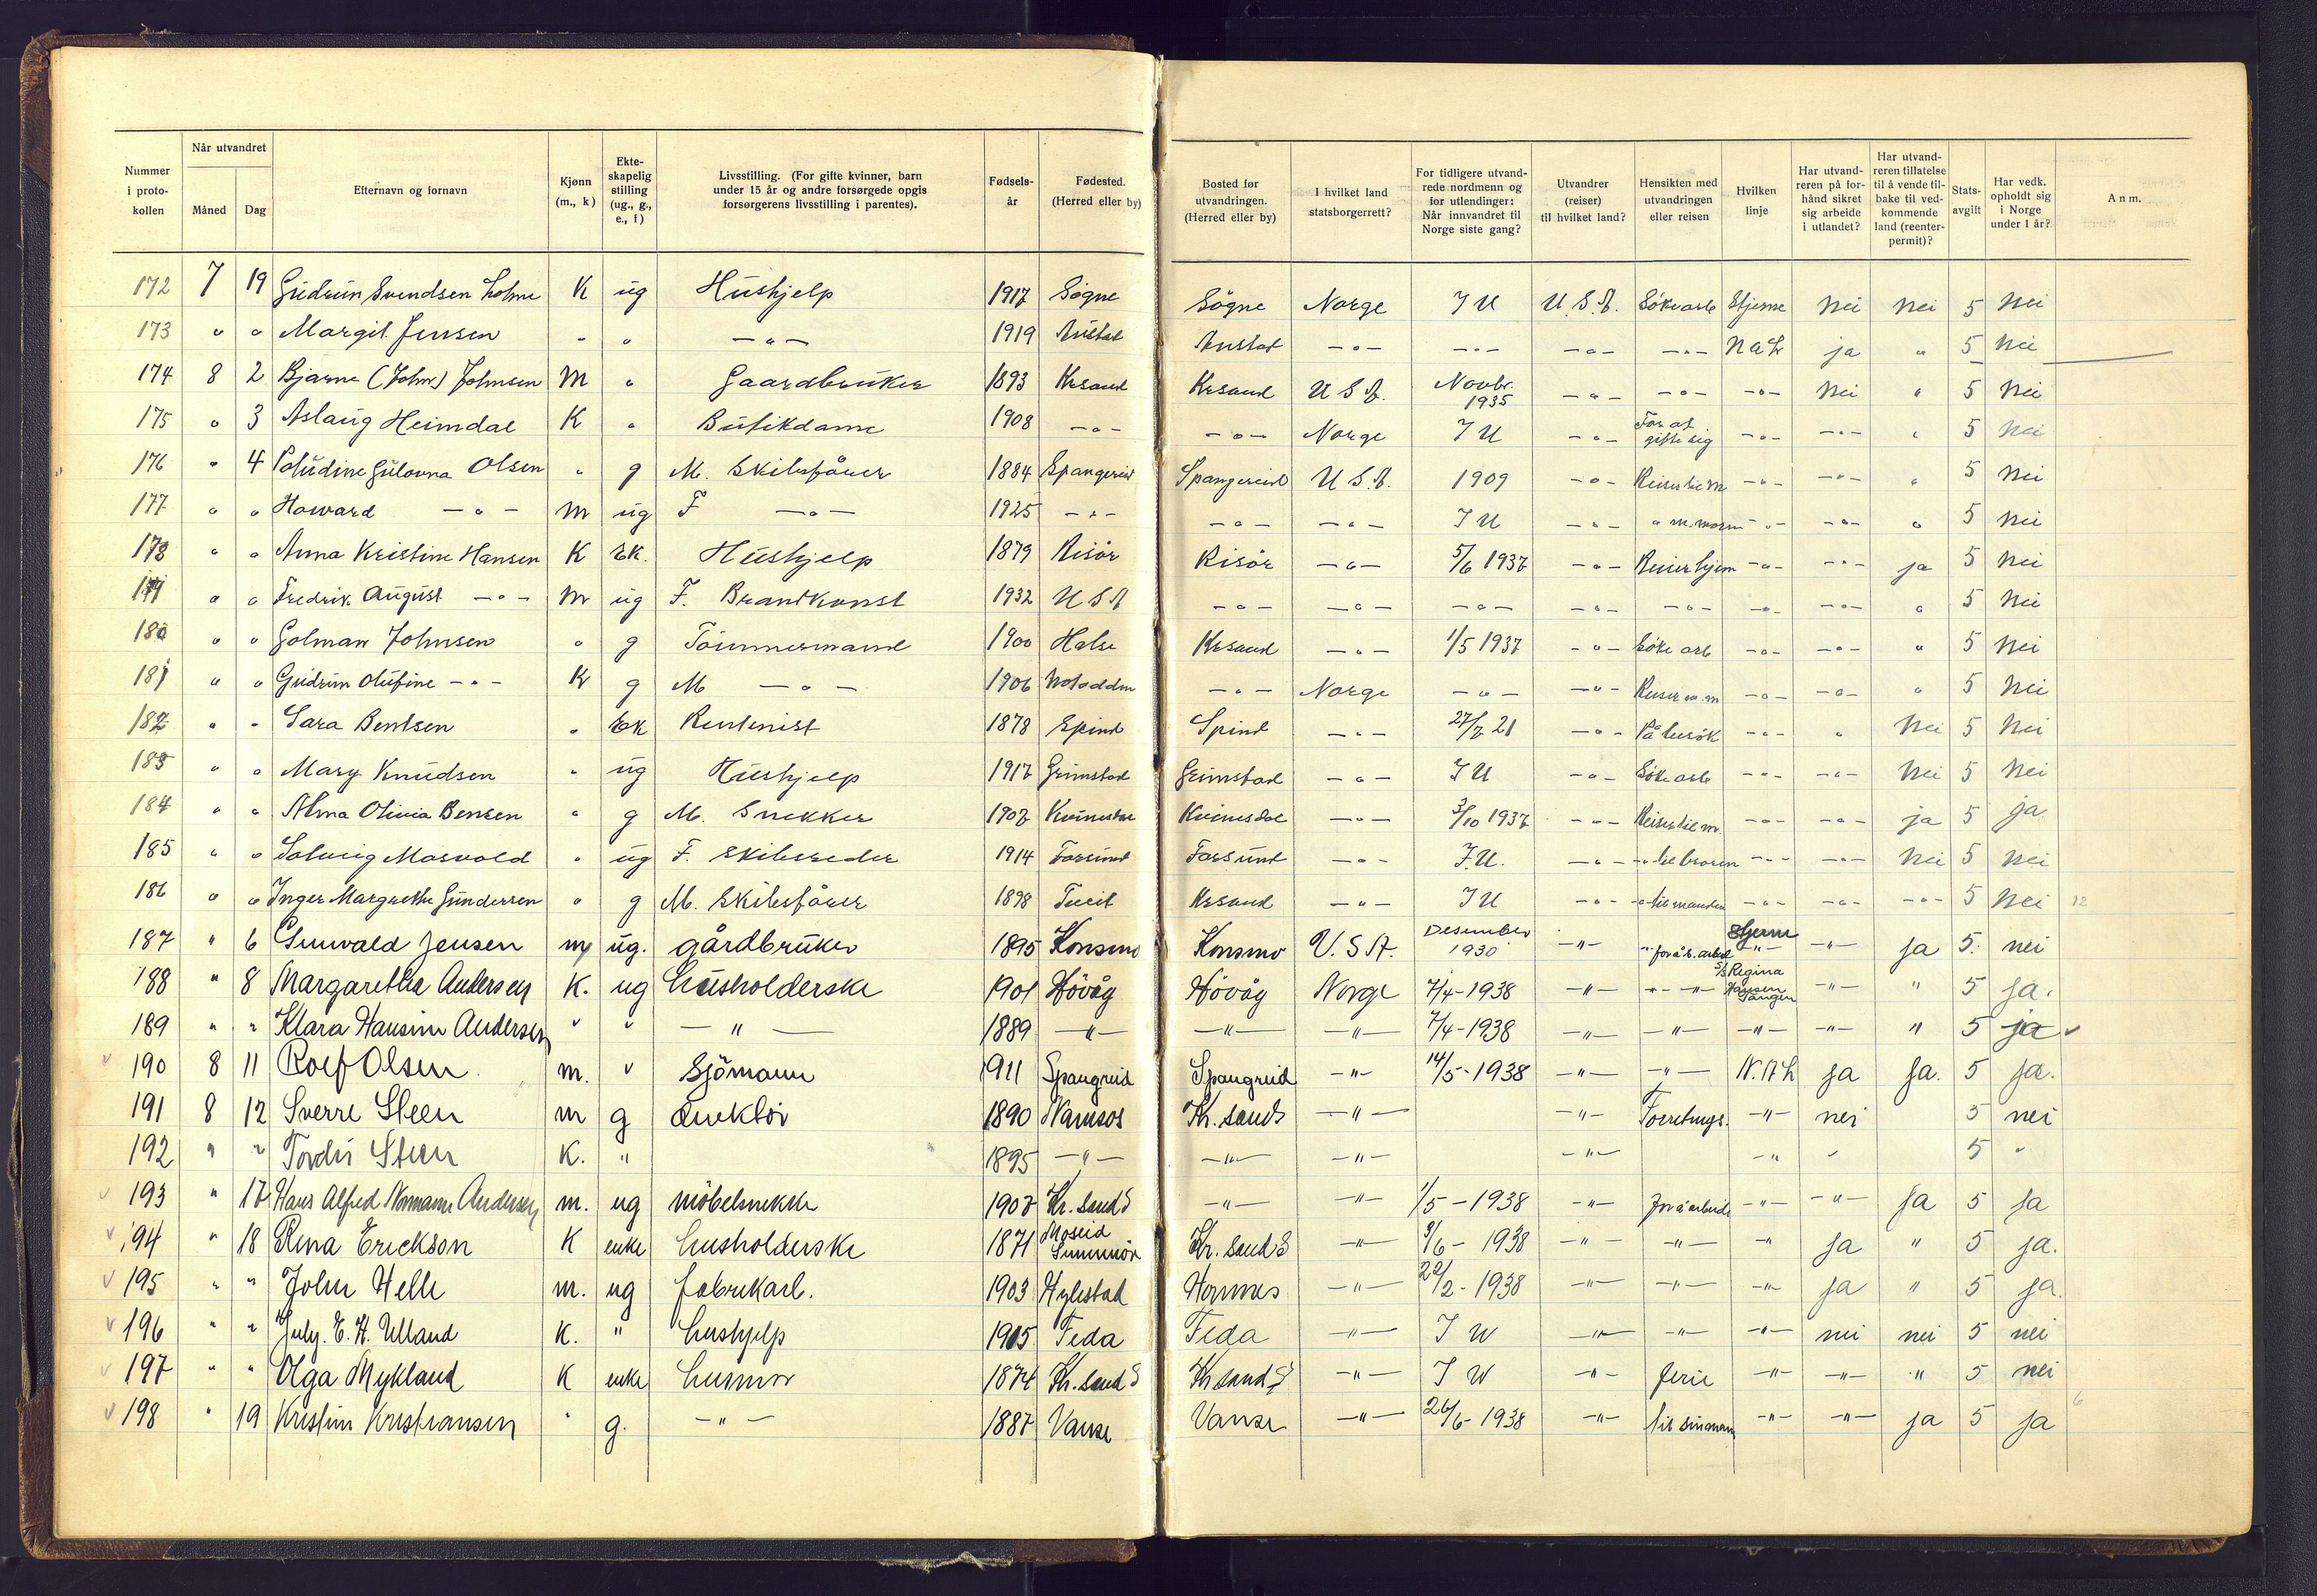 Nummer i protokollen | Når utvandret Måned | Dag | Efternavn og fornavn | Kjønn (m., k) | Ekteskapelig stilling (ug., g., e., f) | Livsstilling. (For gifte kvinner, barn under 15 år og andre forsørgede opgis forsørgerens livsstilling i parentes). | Fødselsår | Fødested. (Herred eller by) | Bosted før utvandringen. (Herred eller by) | I hvilket land statsborgerrett? | For tidligere utvandrede nordmenn og for utlendinger: Når innvandret til Norge siste gang? | Utvandrer (reiser) til hvilket land? | Hensikten med utvandringen eller reisen | Hvilken linje | Har utvandreren på forhånd sikret sig arbeide i utlandet? | Har utvandreren tillatelse til å vende tilbake til vedkommende land (reenterpermit)? | Statsavgift | Har vedk. opholdt sig i Norge under 1 år? | Anm.
172 7 19 Gudrun Svendsen Holme K ug Hushjelp 1917 Søgne Søgne Norge I U U.S.A. Søke arb Stjerne Nei Nei 5 Nei
173 " " Margit Jensen " " —"— 1919 —"— —"— —"— —"— N a L ja " 5 Nei
174 8 2 Bjarne (John) Johnsen M " Gaardbruker 1893 Krsand Krsand U S A. Novbr. 1935 —"— —"— —"— Nei " 5 Nei
175 " 3 Aslaug Heimdal K " Butikdame 1908 —"— —"— Norge I U —"— For at gifte sig —"— —"— " 5 Nei
176 " 4 Olsen " g M. Skibsfører 1884 Spangereid Spangereid U.S.A. 1909 —"— Reiser til m —"— —"— " 5 Nei
177 " " Howard —"— M ug F —"— 1925 —"— —"— —"— I U —"— " —"— —"— " 5 Nei
178 " " Anna Kristine Hansen K Ek. Hushjelp 1879 Risør Risør —"— 5/6 1937 —"— Reiser hjem —"— —"— ja 5 Nei
" " Fredrik August —"— M ug F. 1932 U S A —"— —"— —"— —"— —"— —"— —"— " 5 Nei
180 " " Golman Johnsen " g Tømmermand 1900 Halse Krsand —"— 1/5 1937 —"— Søke arb —"— —"— " 5 Nei
181 " " Gudrun Olufine —"— K g M —"— 1906 Notodden —"— Norge —"— —"— Reiser m. m —"— —"— " 5 Nei
182 " " Sara Bentsen " Ek Rentenist 1878 Spind Spind —"— 21 —"— På besøk —"— " Nei 5 Nei
183 " " Mary Knudsen " ug Hushjelp 1917 Grimstad Grimstad —"— I U —"— Søke arb —"— —"— Nei 5 Nei
184 " " Alma Olivia Bensen " g M. Snekker 1907 Kvinesdal Kvinesdal —"— 3/10 1937 —"— Reiser til m. —"— —"— ja 5 ja
185 " " Solveig Mosvold " ug F. Skibsreder 1914 Farsund Farsund —"— I.U. —"— " til broren —"— —"— Nei 5 Nei
186 " " Inger Margrethe Gundersen " g M. Skibsfører 1898 Tveit Krsand —"— I U —"— " til manden —"— —"— —"— 5 Nei 12
187 " 6 Gunvald Jensen m ug. gårdbruker 1895 Konsmo Konsmo U.S.A. Desember 1930 —"— " for å s. arbeid Stjerne —"— —"— ja 5. nei
188 " 8 Margarethe Andersen K. ug husholderske 1901 Høvåg Høvåg Norge 7/4-1938 —"— —"— S/S Regina Hansen Tangen —"— " 5 ja.
189 " " Klara Hansine Andersen " " —"— 1889 —"— —"— —"— 7/4-1938 —"— —"— —"— —"— " 5 ja ✓
✓ 190 8 11 Rolf Olsen m. " Sjømann 1911 Spangreid Spangreid —"— 14/5-1938 —"— —"— N.A L ja ja. 5 ja.
191 8 12 Sverre Steen m g direktør 1890 Namsos Kr.sandS —"— —"— —"— nei 5 nei
192 " " Tordis Steen K. " 1895 —"— —"— —"— —"— —"— " 5 "
✓ 193 " 17 Hans Alfred Normann Andersen m. ug møbelsnekker 1907 Kr.sandS —"— —"— 1/5-1938 —"— for å arbeide —"— —"— ja 5 ja
✓ 194 " 18 Rena Erickson K enke husholderske 1871 Kr.sandS —"— 9/6-1938 —"— —"— —"— ja " 5 ja.
✓ 195 " " John Helle m. ug fabrikarb. 1903 Hylestad Hornnes —"— 22/2-1938 —"— —"— —"— ja " 5 ja.
✓ 196 " " July. E. H. Ulland K. " hushjelp 1915 Feda Feda —"— I U —"— —"— —"— nei nei 5 nei
✓ 197 " " Olga Mykland K enke husmor 1874 Kr.sandS Kr.sandS —"— I U —"— ferie —"— —"— " 5 nei
✓ 198 " 19 Kristine Kristiansen " g. —"— 1887 Vanse Vanse —"— 26/6-1938 —"— til sin mann —"— —"— ja 5 ja 6